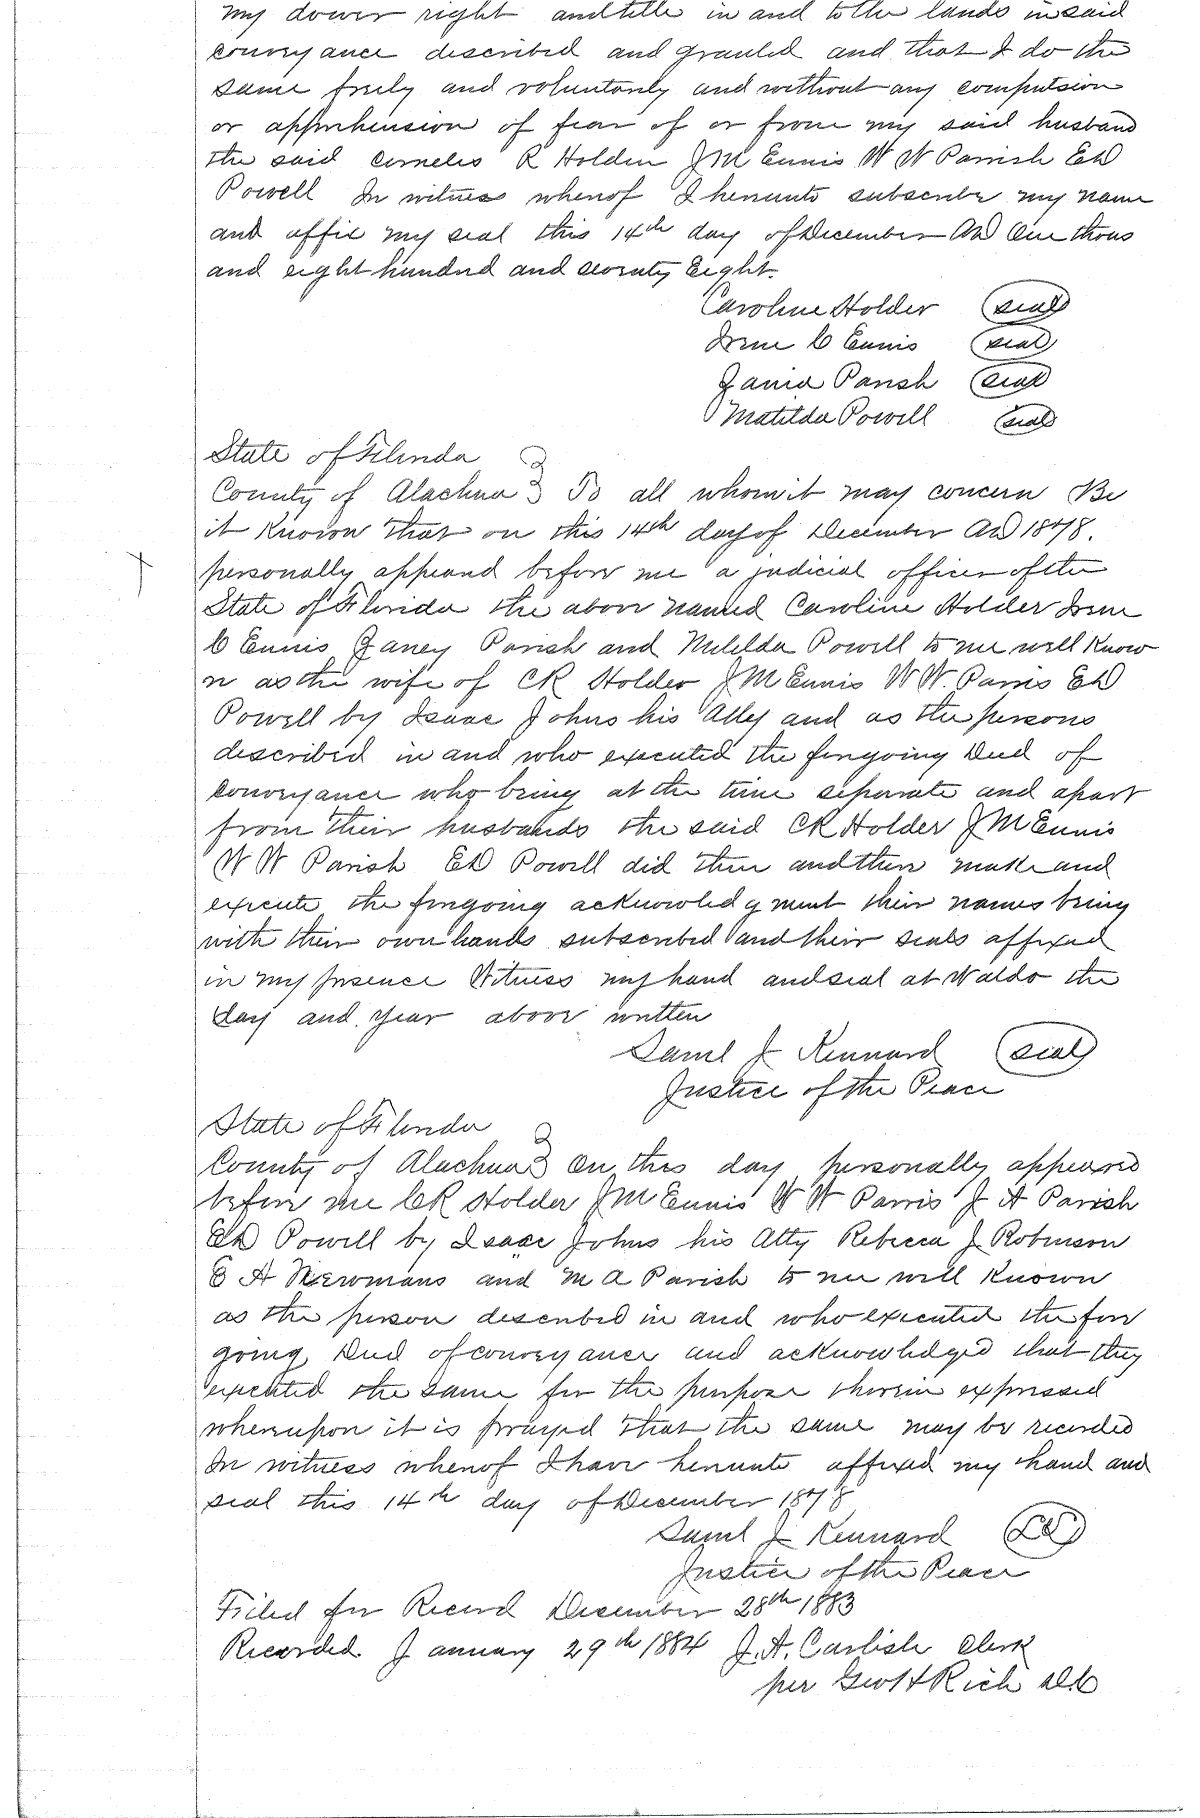 my dower right and title in and to the lands in said
conveyance described and granted and that I do the
same freely and voluntarily and without any compulsion
or apprehension of fear of or from my said husband
the said Cornelis R Holder J M Ennis W W Parrish E D
Powell In witness whereof I hereunto subscribe my name
and affix my seal this 14th day of December AD One thous
and eight hundred and seventy Eight.
Caroline Holder (seal)
Irene C Ennis (seal)
Parish (seal)
Matilda Powell (seal)
State of Florida
County of Alachua } To all whom it may concern Be
it Known that on this 14th day of December AD 1878.
personally appeard before me a judicial officer of the
State of Florida the above named Caroline Holder Irene
C Ennis Janey Parish and Powell to me well know
n as the wife of C R Holder J M Ennis W W. Parris E D
Powell by Isaac Johns his Atty and as the persons
described in and who executed the forgoing Deed of
conveyance who being at the time separate and apart
from their husbands the said C R Holder J M Ennis
W W Parish E D Powell did then and there make and
execute the forgoing acknowledgment their names being
with their own hands subscribed and their seals affixed
in my presence Witness my hand and seal at Waldo the
day and year above written
Saml J Kennard (seal)
Justice of the Peace
State of Florida
County of Alachua } On this day personally appeared
before me C R Holder J M Ennis W W Parris J A Parish
E D Powell by Isaac Johns his Atty Rebecca J Robinson
E A Newmans and M A Parish to me well Known
as the person described in and who executed the fore
going Deed of conveyance and acknowledged that they
executed the same for the purpose therein expressed
whereupon it is prayed that the same may be recorded
In witness whereof I have hereunto affixed my hand and
seal this 14th day of December 1878
Saml J Kennard (LS)
Justice of the Peace
Filed for Record December 28th 1883
Recorded January 29th 1884 J. A. Carlisle Clerk
per Geo H Rich D.C